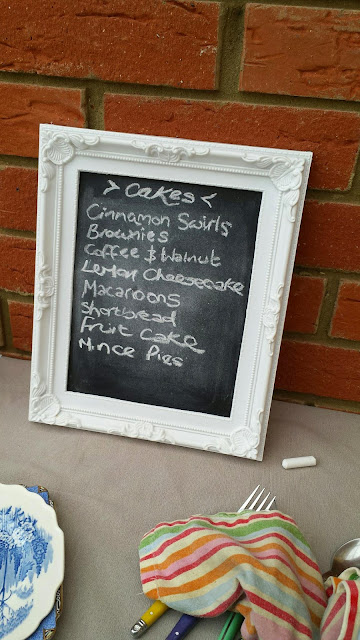 > Cakes <
Cinnamon Swirls
Brownies
Coffee & Walnut
Lemon Cheesecake
Macaroons
Shortbread
Fruit Cake
Mince Pies